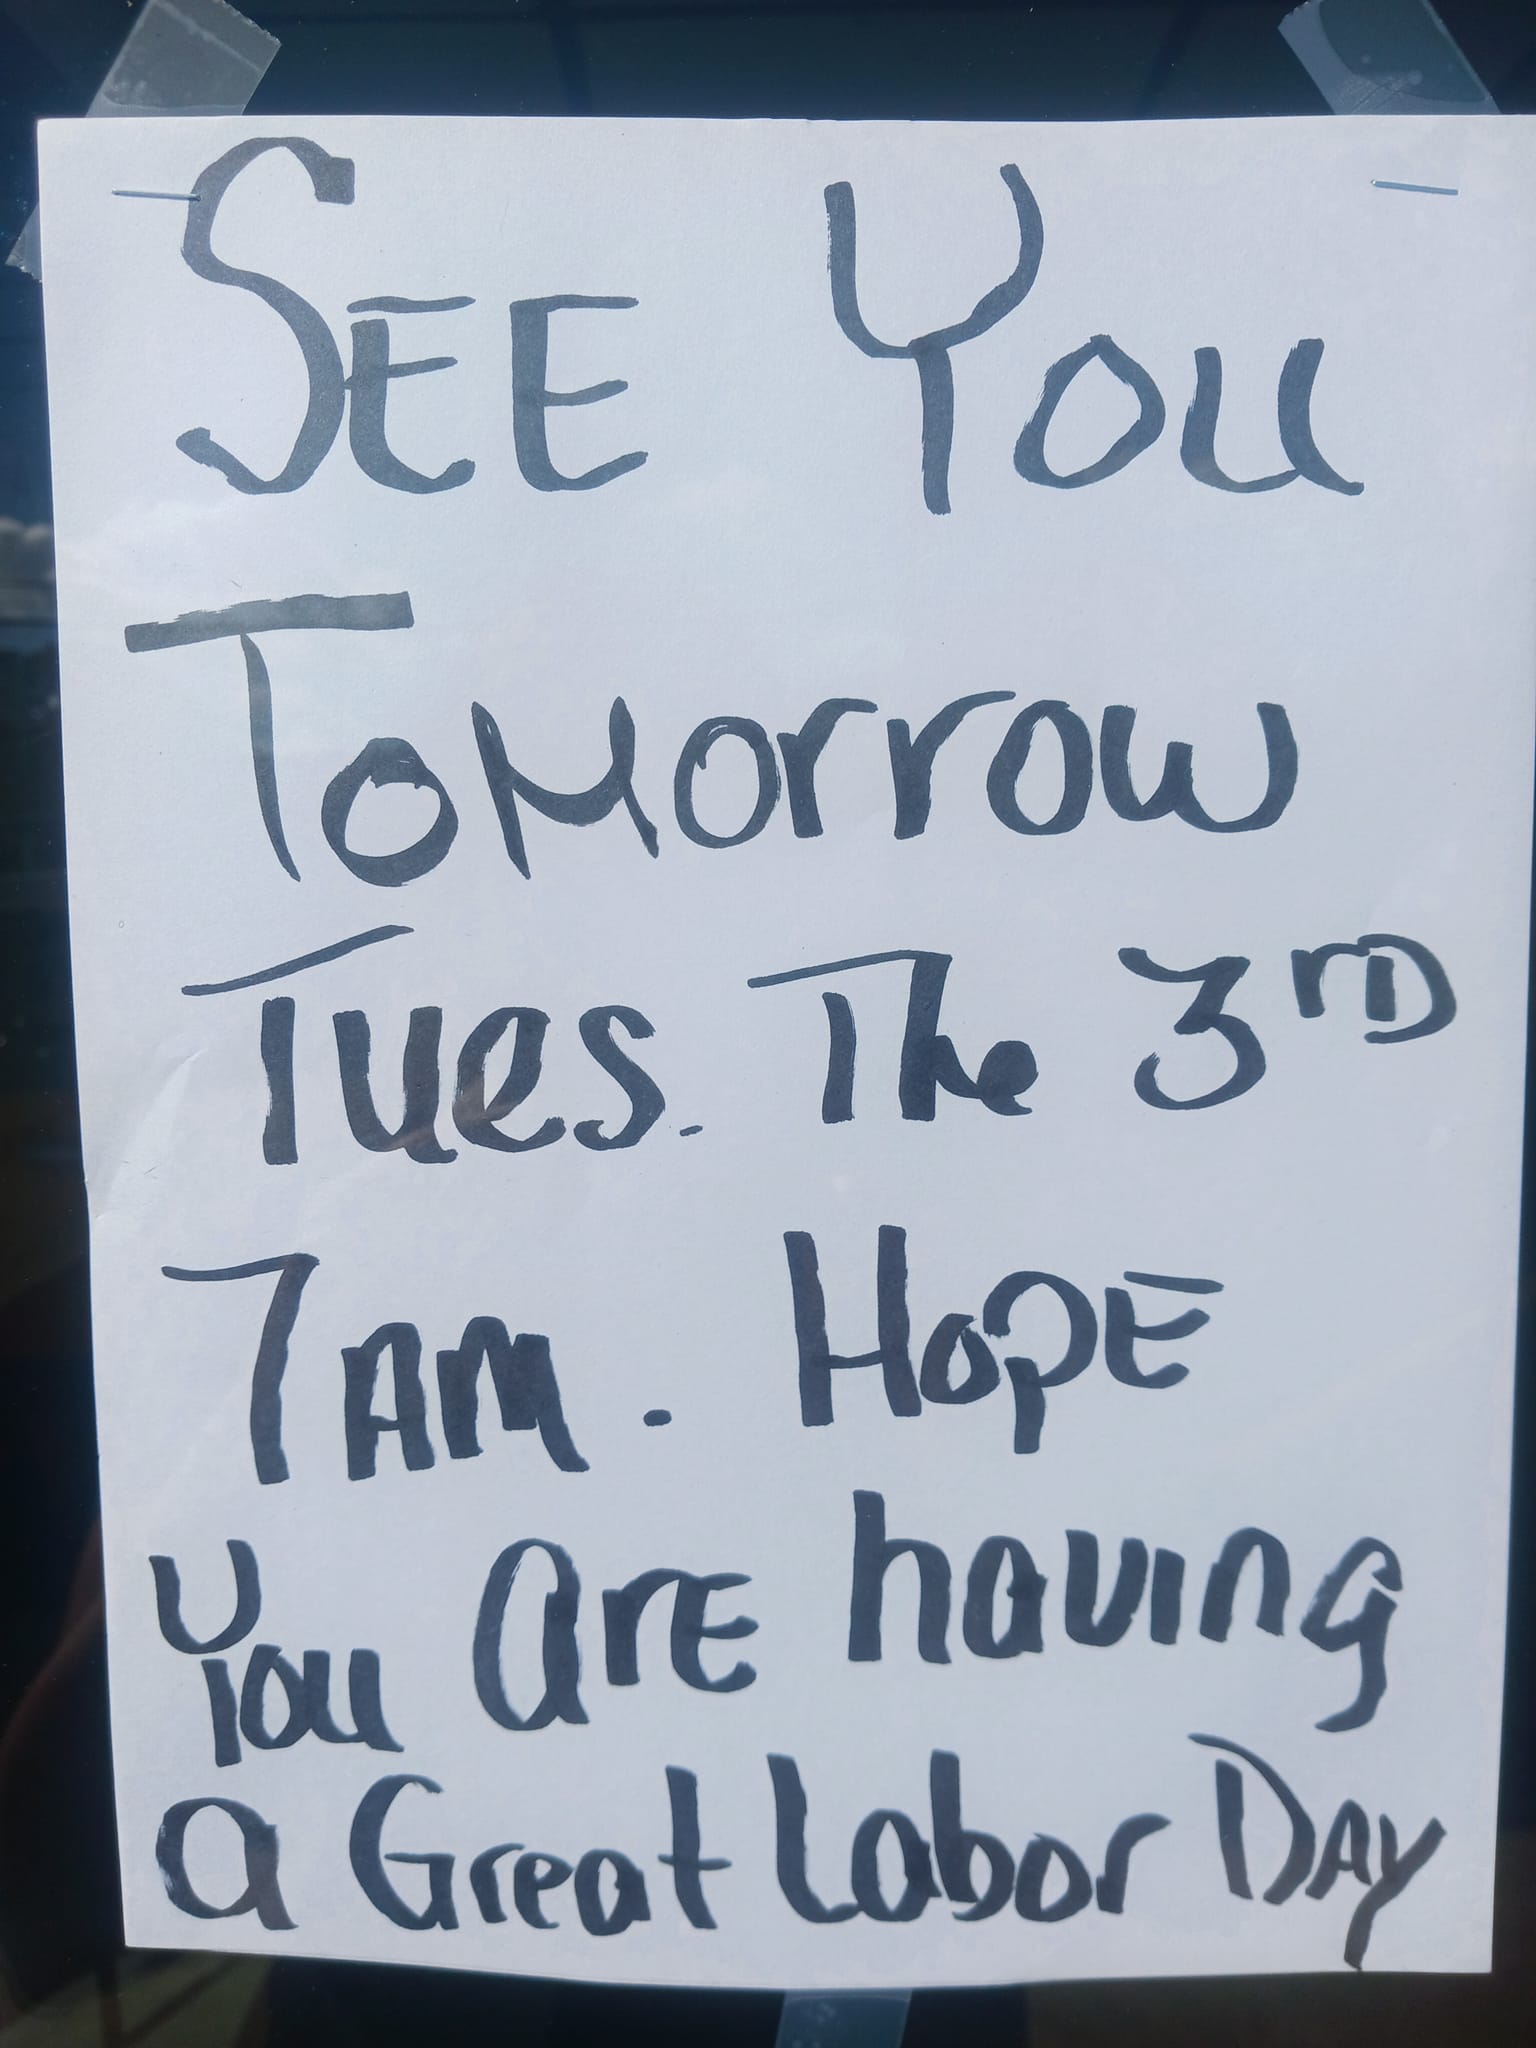 SEE YOU
TOMorrow
TUES. The 3rD
7AM. HOPE
You ArE having
a Great Labor DAY